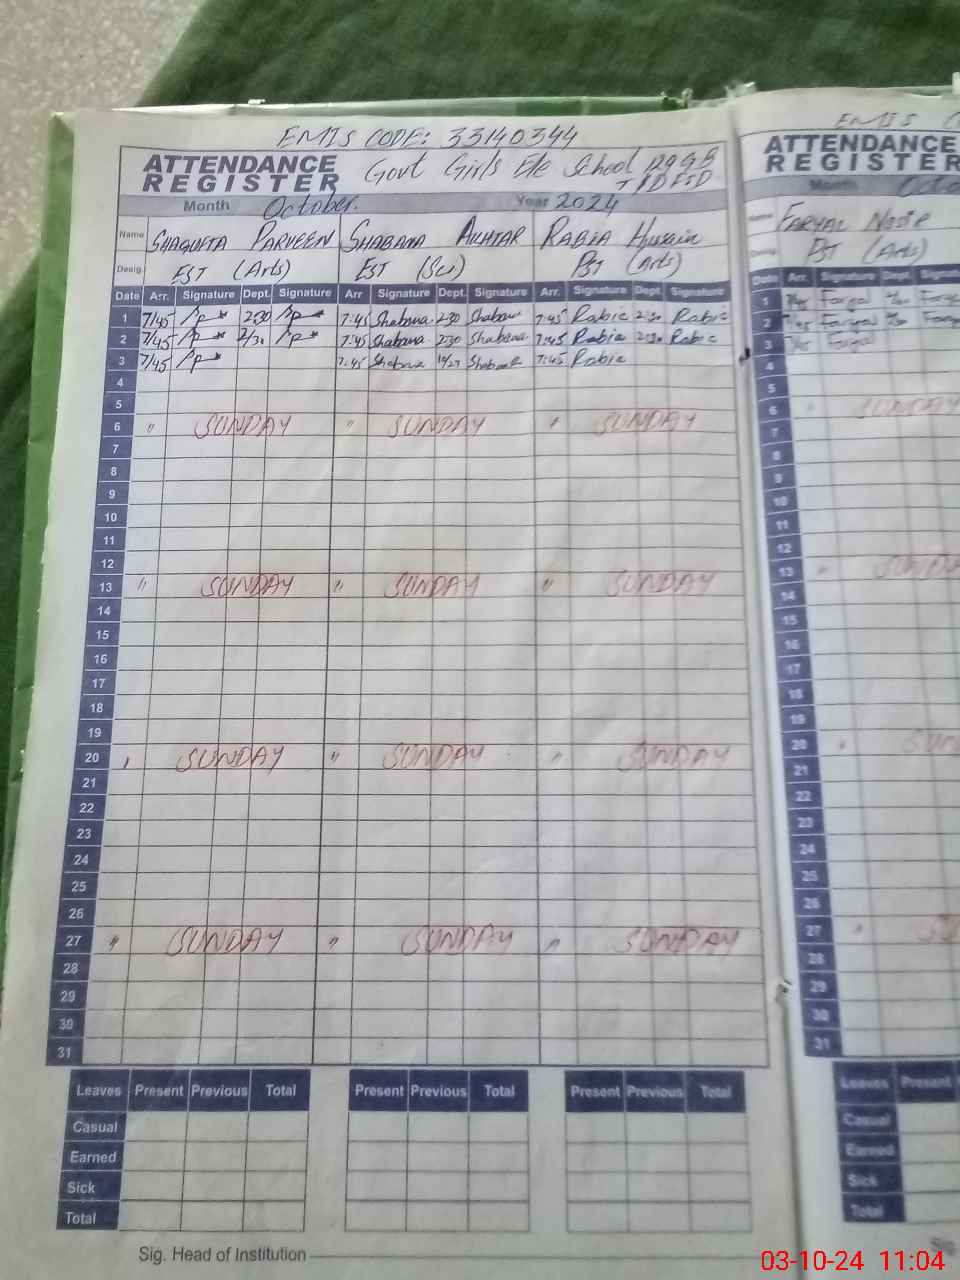 EMIS CODE: 33140344
ATTENDANCE REGISTER
Govt Girls Ele School
Month October. Year 2024
Name SHAGUFTA PARVEEN SHABANA AKHTAR RABIA Hussain
Desig EST (Arts) EST (Sci) PST (Arts)
Date Arr. Signature Dept. Signature Arr Signature Dept. Signature Arr. Signature Dept Signature
1 7/45 2:30 7:45 Shabana 2:30 Shabana 7:45 Rabia 2:30 Rabia
2 7/45 2/30 7:45 Shabana 2:30 Shabana 7:45 Rabia 2:30 Rabia
3 7/45 7:45 Shabana Shabana 7:45 Rabia
4
5
6 " SUNDAY " SUNDAY " SUNDAY
7
8
9
10
11
12
13 " SUNDAY " SUNDAY " SUNDAY
14
15
16
17
18
19
20 SUNDAY " SUNDAY " SUNDAY
21
22
23
24
25
26
27 " SUNDAY " SUNDAY " SUNDAY
28
29
30
31
Leaves Present Previous Total Present Previous Total Present Previous Total
Casual
Earned
Sick
Total
Sig. Head of Institution
EMIS
ATTENDANCE
REGISTER
Month
Name FARYAL
PST (Arts)
Date Arr. Signature Dept.
1 Faryal
2 Faryal
3 Faryal
4
5
6 SUNDAY
7
8
9
10
11
12
13
14
15
16
17
18
19
20
21
22
23
24
25
26
27
28
29
30
31
Leaves Present
Casual
Earned
Sick
Total
03-10-24 11:04